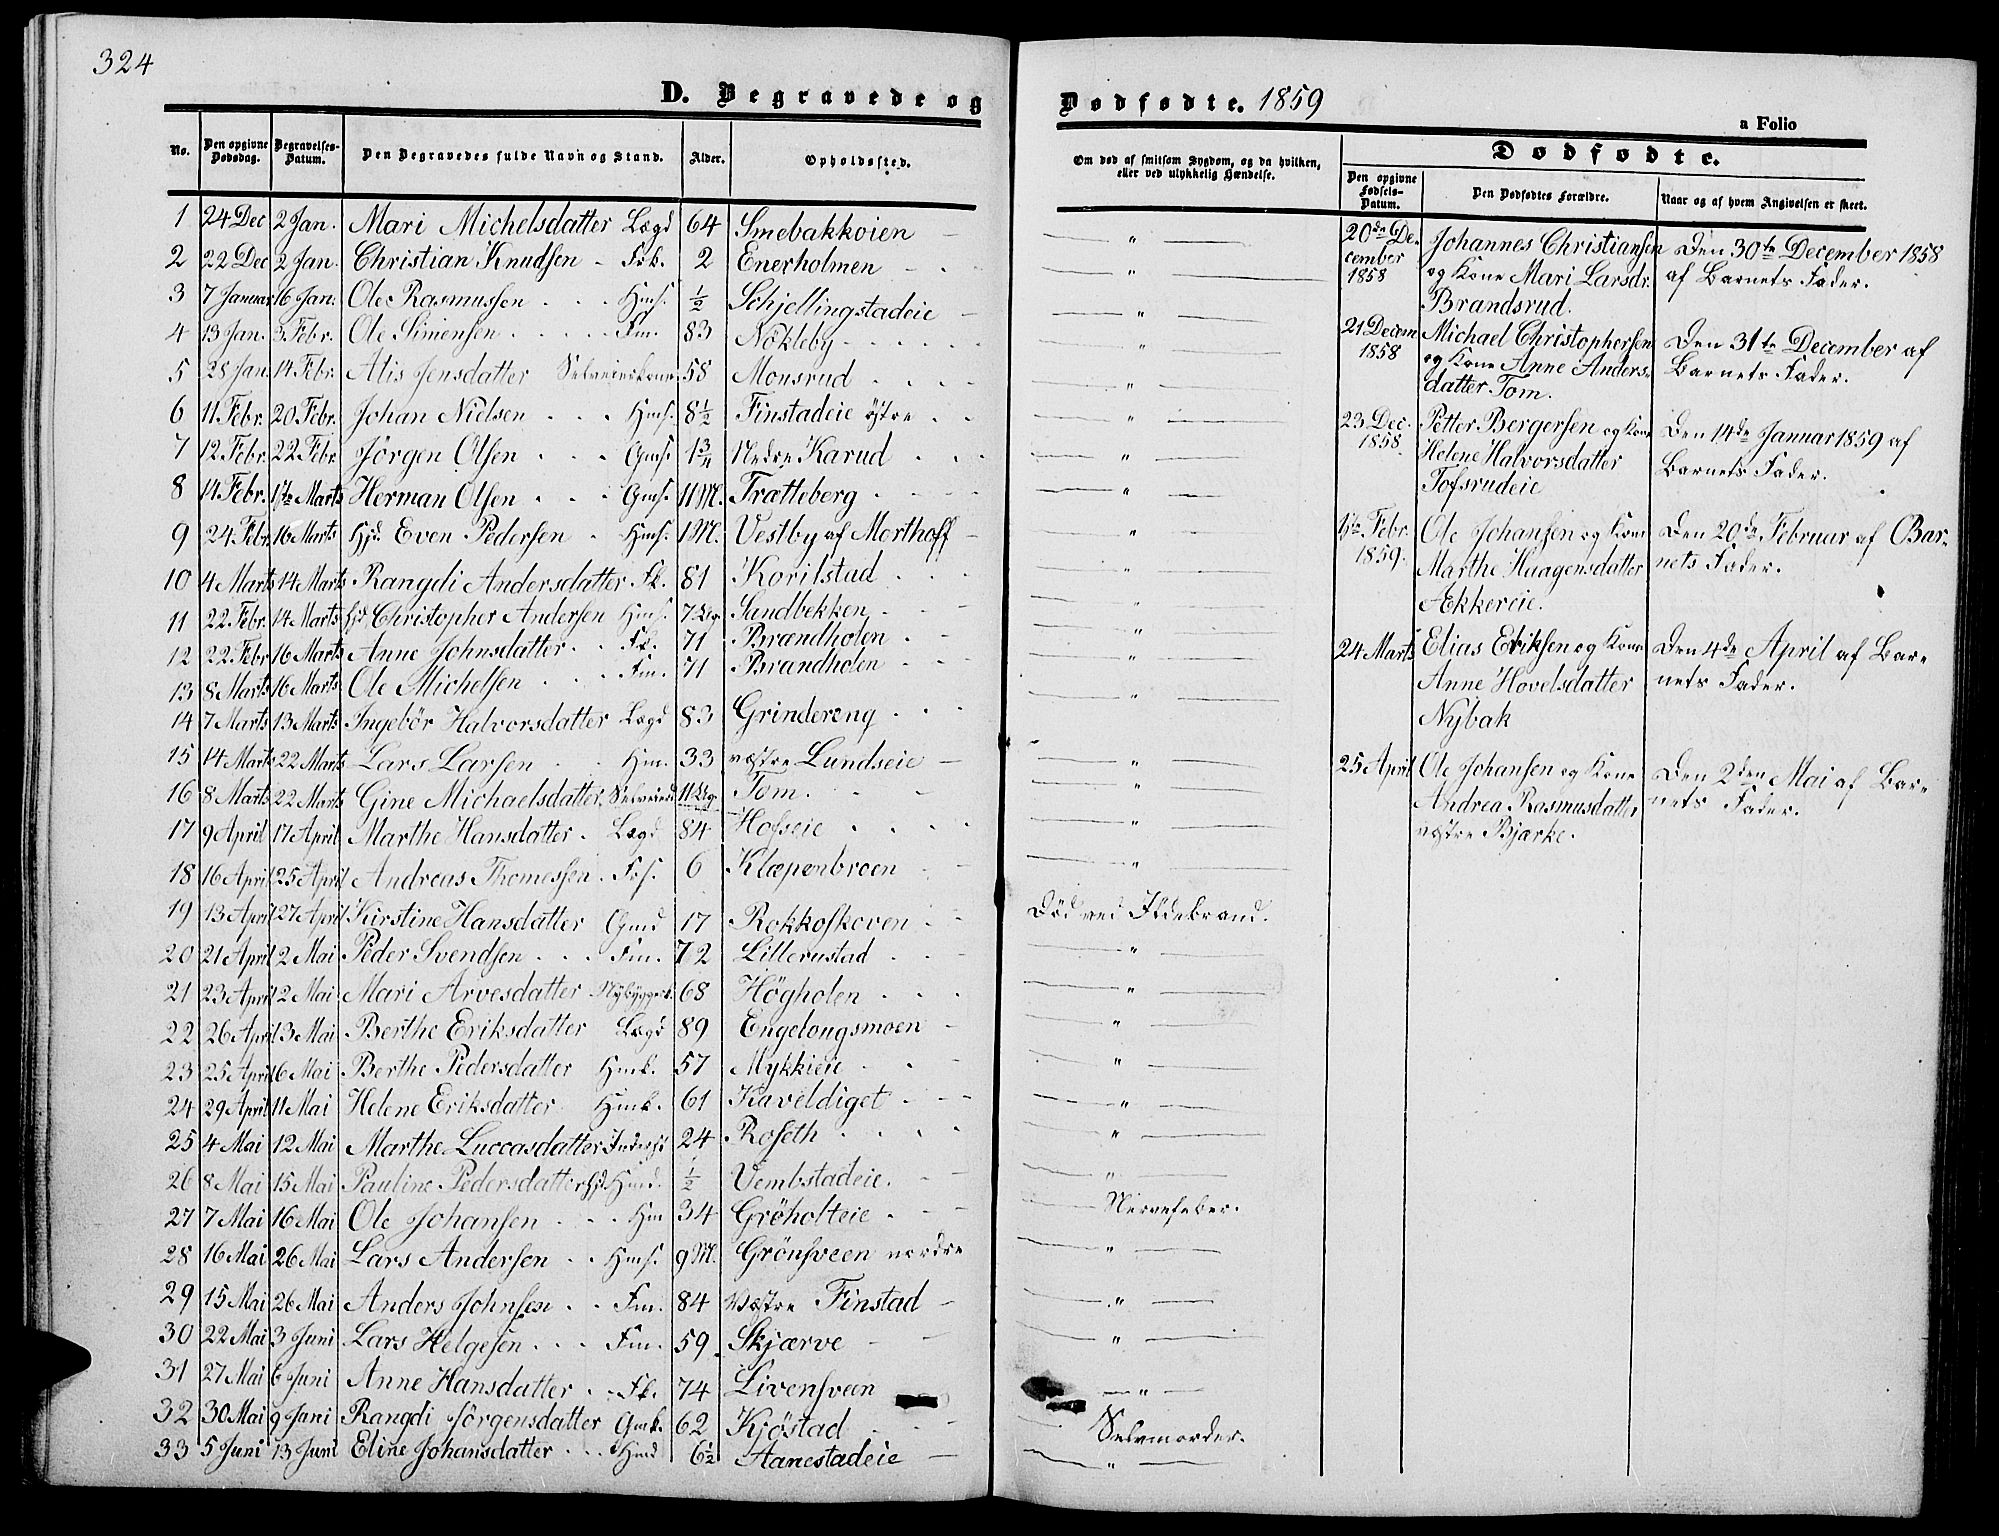 324
D. Begravede og Dødfødte. 1859
a Folio
No. Den opgivne Dødsdag. Begravelses-Datum. Den Begravedes fulde Navn og Stand. Alder. Opholdssted. Om død af smitsom Sygdom, og da hvilken, eller ved ulykkelig Hændelse.
1 24 Dec 2 Jan. Mari Michelsdatter Lægd 64 Smebakkoien "
2 22 Dec 2 Jan. Christian Knudsen Frk. 2 Enerholmen "
3 7 Januar 16 Jan. Ole Rasmussen Hms. ½ Schjellingstadeie "
4 13 Jan. 3 Febr. Ole Simensen Fm. 83 Nökleby "
5 28 Jan. 14 Febr. Alis Jensdatter Selveierkone 58 Monsrud "
6 11 Febr. 20 Febr. Johan Nielsen Hms. 8½ Finstadeie östre "
7 12 Febr. 22 Febr. Jörgen Olsen Gms. 1¾ Nedre Karud "
8 14 Febr. 1ste Marts Herman Olsen Gms. 11 M. Trætteberg "
9 24 Febr. 16 Marts Hjd. Even Pedersen Hms. 1 M. Vestby af Morthoff "
10 4 Marts 14 Marts Rangdi Andersdatter Fk. 81 Korilstad "
11 22 Febr. 14 Marts hjd Christopher Andersen Hms. 7 Ug Sandbekken "
12 22 Febr 16 Marts Anne Johnsdatter Fk. 71 Brændholen "
13 8 Marts 16 Marts Ole Michelsen Fm. 71 Brændholen "
14 7 Marts 13 Marts Ingebör Halvorsdatter Lægd 83 Grindereng "
15 14 Marts 22 Marts Lars Larsen Hm. 33 vestre Lundseie "
16 8 Marts 22 Marts Gine Michaelsdatter Selveierd 11 Ug. Tom. "
17 9 April 17 April Marthe Hansdatter Lægd 84 Hofseie "
18 16 April 25 April Andreas Thomessen Frs. 6 Klæpenbroen "
19 13 April 27 April Kirstine Hansdatter Gmd 17 Rokkoskoven Död ved Ildebrand.
20 21 April 2 Mai Peder Svendsen Fm. 72 Lillerustad "
21 23 April 2 Mai Mari Arvesdatter Nybyggerk. 68 Högholen "
22 26 April 3 Mai Berthe Eriksdatter Lægd 89 Engelongsmoen "
23 25 April 6 Mai Berthe Pedersdatter Hmk. 57 Mykkieie "
24 29 April 11 Mai Helene Eriksdatter Hmk. 61 Kaveldiget "
25 4 Mai 12 Mai Marthe Luccasdatter Inderst 24 Roseth "
26 8 Mai 15 Mai Pauline Pedersdatter hjd Hmd. ½ Vembstadeie. "
27 7 Mai 16 Mai Ole Johansen Hm 34 Gröholteie Nervefeber.
28 16 Mai 26 Mai Lars Andersen Hms. 9 M. Grönsveen nordre "
29 15 Mai 26 Mai Anders Johnsen Fm. 84 Vestre Finstad "
30 22 Mai 3 Juni Lars Helgesen Fm. 59 Skjærve "
31 27 Mai 6 Juni Anne Hansdatter Fk. 74 Livensveen "
32 30 Mai 9 Juni Rangdi Jörgensdatter Gmk. 62 Kjöstad Selvmorder.
33 5 Juni 13 Juni Eline Johansdatter Hmd 6½ Aanestadeie "
Dødfødte.
Den opgivne Fødsels-Datum. Den Dødfødtes Forældre. Naar og af hvem Angivelsen er skeet.
20de De- Johannes Christiansen Den 30te December 1858
cember og Kone Mari Larsdr. af Barnets Fader.
1858 Brandsrud.
21 Decem Michael Christophersen Den 31te December af
1858 og Kone Anne Anders- Barnets Fader.
datter Tom.
23 Dec. Petter Bergersen og Kone Den 14de Januar 1859 af
1858. Helene Halvorsdatter Barnets Fader.
Tofsrudeie
Febr. Ole Johansen og Kone Den 20de Februar af Bar-
1859. Marthe Haagensdatter nets Fader.
Akkereie.
24 Marts Elias Eriksen og Kone Den 4de April af Bar-
Anne Hovelsdatter nets Fader.
Nybak
25 April Ole Johansen og Kone Den 2den Mai af Bar-
Andrea Rasmusdatter nets Fader.
vestre Bjærke.